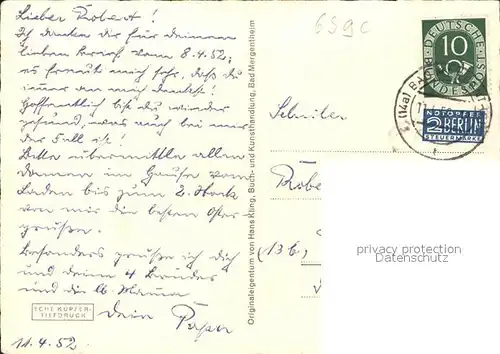 Lieber Robert!
Ich danke dir für deinen
lieben Brief vom 8.4.52;
es freut mich sehr, daß du
immer an mich denkst!
Hoffentlich bist du wieder
gesund, was auch bei mir
der Fall ist!
Bitte übermittle allen
Damen im Hause vom
Laden bis zum 2. Stock
von mir die besten Oster-
grüße.
Besonders grüße ich dich
und deine 4 Freunde
und die lb. Mama
Dein Papa
11.4.52.
ECHT KUPFER-
TIEFDRUCK
Originaleigentum von Hans Kling, Buch- und Kunsthandlung, Bad Mergentheim
659c
DEUTSCHE
BUNDESPOST
10
NOTOPFER
2 BERLIN
STEUERMARKE
(14a) BAD
Schüler
Robe
(13b)
privacy protection
Datenschutz